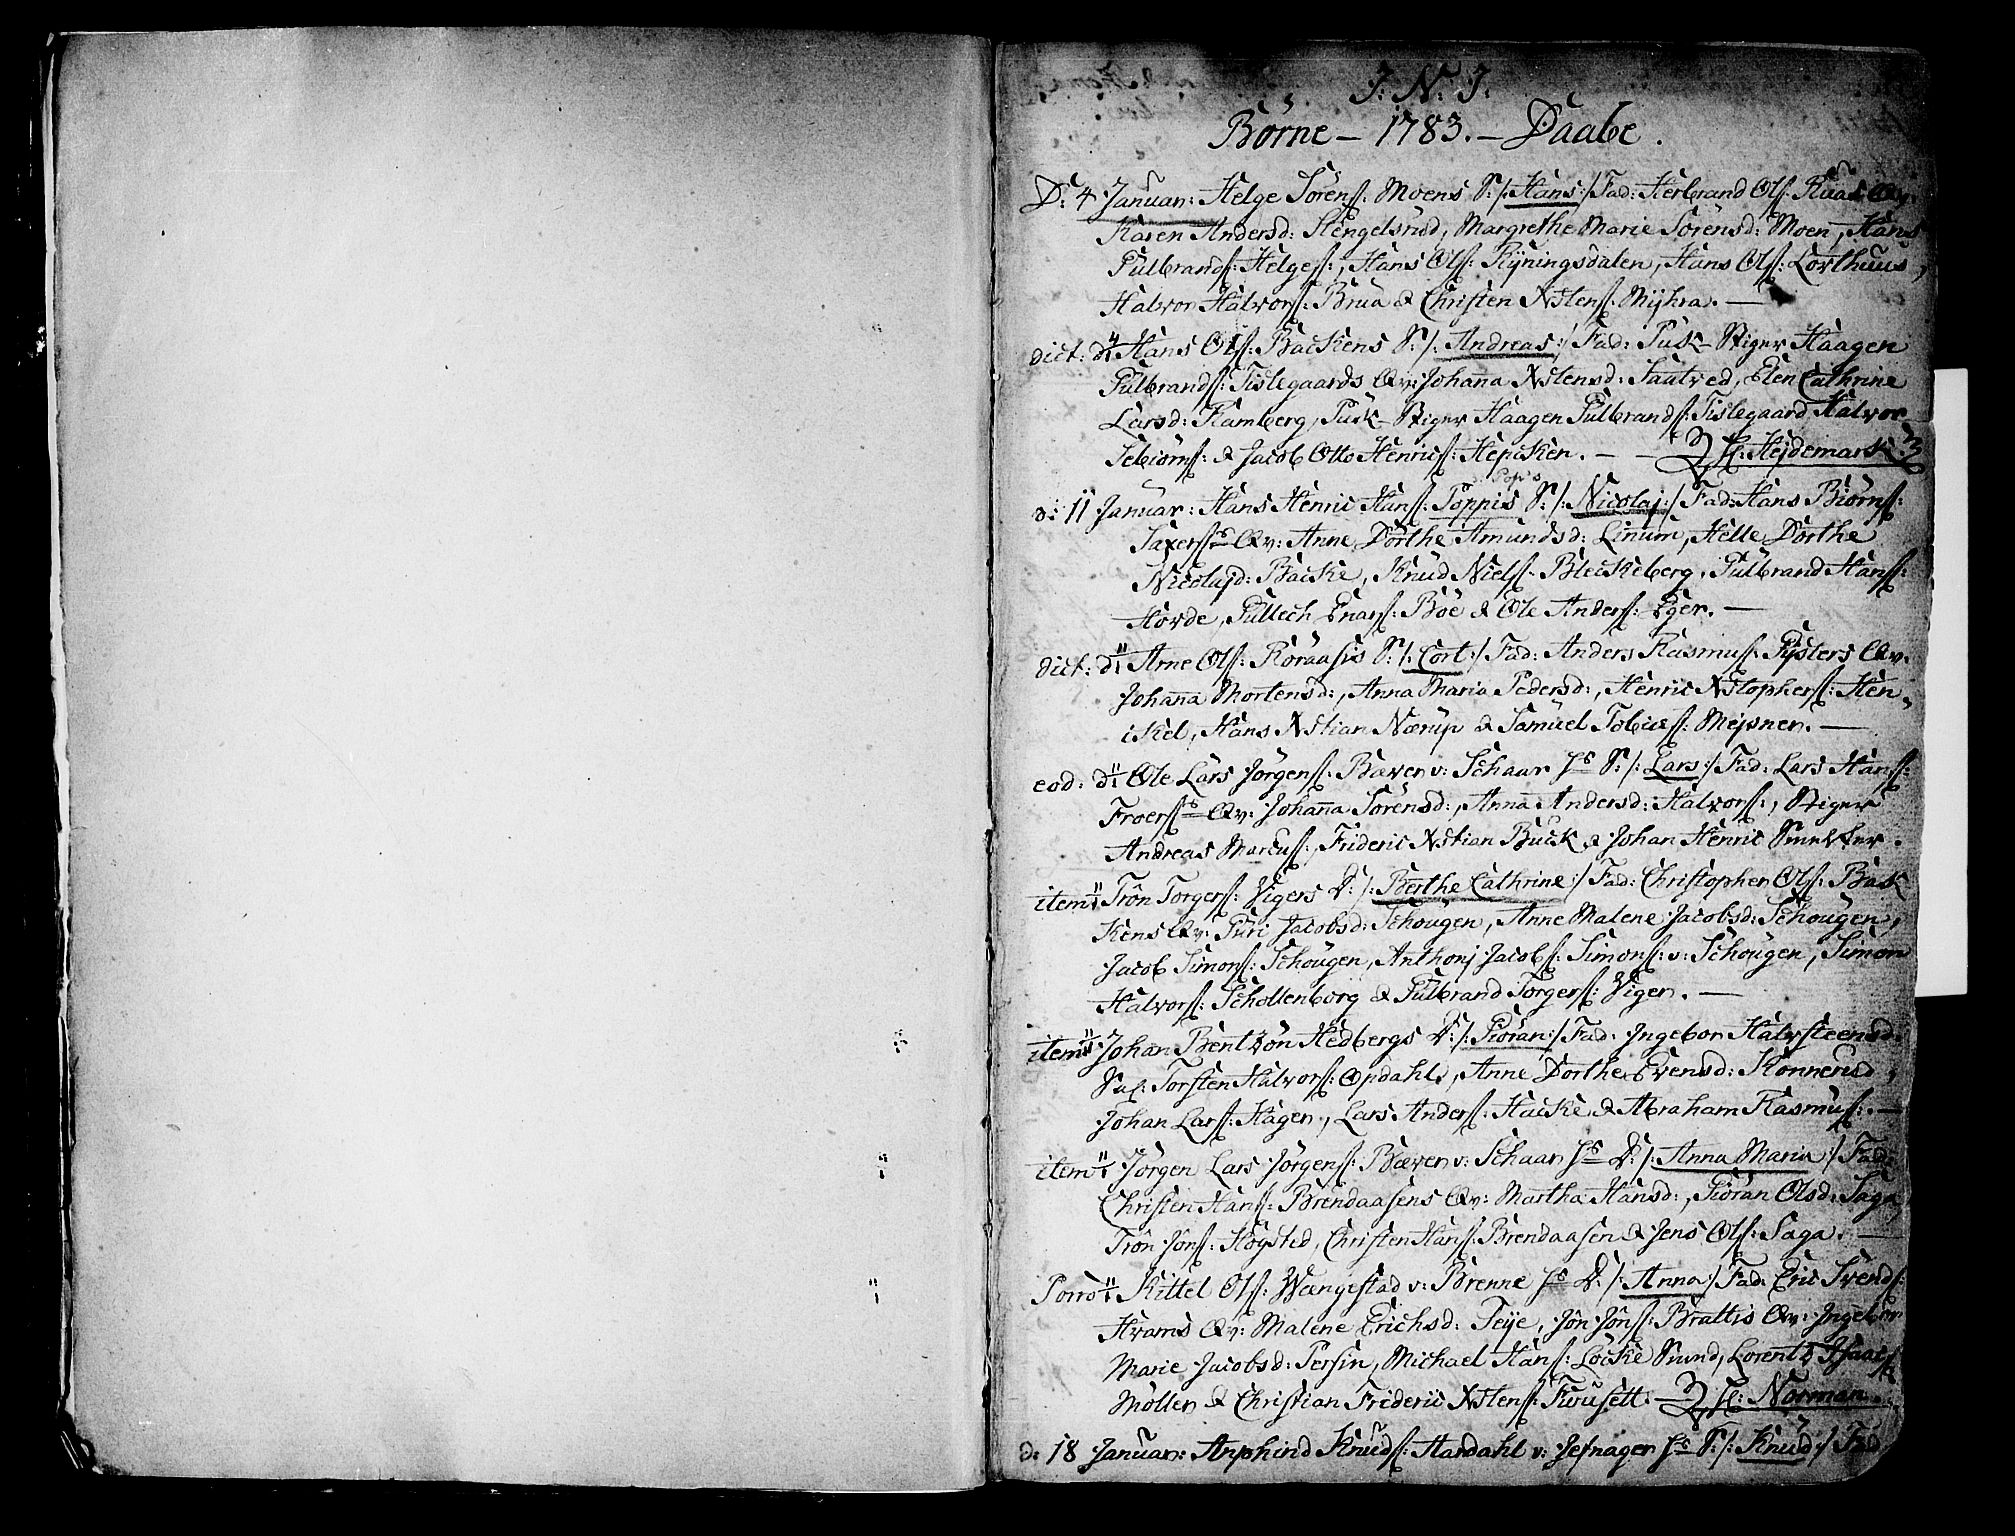 J: N: J:
Börne – 1783. – Daabe.
D: 4 Januar: Helge Sörens: Moens S: /: Hans :/ Fad: Herbrand Ols: Ruas Qv:
Karen Andersd: Hengelsrud, Margrethe Marie Sörensd: Moen, Hans
Gulbrands: Helges:, Hans Ols: Ryningsdalen, Hans Ols: Corthuus,
Halvor Halvors: Brua & Christen Xstens: Myhra. —
dict: d: 4 Hans Ols: Backens S: /: Andreas :/ Fad: Puk-Stiger Haagen
Gulbrands: Tislegaards Qv: Johana Xstensd: Sautved, Elen Cathrine
Larsd: Ramberg, Puk-Stiger Haagen Gulbrands: Tislegaard Halvor
Tebiörns: & Jacob Otto Henrics: Hepcken. — — H: Hejdemark:
d: 11 Januar: Hans Henric Hans: Poppis S: /: Nicolaj :/ Fad: Hans Biörns:
Pop's
Saxers Qv: Anne Dorthe Amundsd: Linum, Helle Dorthe
Nicolajd: Backe, Knud Niels: Bleckeberg, Gulbrand Hans:
Horde, Gullech Enars: Böe & Ole Anders: Eger. —
dict: d: 11 Arne Ols: Röraasis S: /: Cort :/ Fad: Anders Rasmus: Qv:
Johana Mortensd:, Anna Maria Pedersd:, Henric Xstophers: Hen-
ickel, Hans Xstian Nærup & Samuel Tobias: Mejsner. —
eod: d: 11 Ole Lars Jörgens: Bæver v: Schaar S: /: Lars :/ Fad: Lars Hans:
Froers Qv: Johana Sörensd:, Anna Andersd: Halvors:, Stiger
Andreas Marcus:, Frideric Xstian Buck & Johan Henric Smelter.
item 11 Trön Torgers: Vigers D: /: Berthe Cathrine :/ Fad: Christopher Ols: Bak-
kens Qv: Guri Jacobsd: Schougen, Anne Malene Jacobsd: Schougen,
Jacob Simons: Schougen, Anthonj Jacobs: Simons: v: Schougen, Simon
Halvors: Schollenborg & Gulbrand Torgers: Viger. —
item 11 Johan Bentzön Hedbergs D: /: Giöran :/ Fad: Ingebor Halvsteensd:
Sal: Torsten Halvors: Opdahl, Anne Dorthe Evensd: Konnerud,
Johan Lars: Hagen, Lars Anders: Hacke & Abraham Rasmus: —
item 11 Jörgen Lars Jörgens: Bæver v: Schaar D: /: Anna Maria :/ Fad:
Christen Hans: Brendaasens Qv: Martha Hansd:, Giöran Olsd: Saga,
Trön Jöns: Högsted, Christen Hans: Brendaasen & Jens Ols: Saga. —
Porro 11 Kittel Ols: Wængestad v: Brenne D: /: Anna :/ Fad: Eric Svends:
Hvams Qv: Malene Erichsd: Teije, Jön Jöns: Brattis Qv: Ingebor
Marie Jacobsd: Persin, Michael Hans: Löcke Smed, Lorentz Isaacs:
Möller & Christian Frideric Xstens: Furusett. — H: Norman.
d: 18 Januar: Anphind Knuds: Hardahl v: Jefnager S: /: Knud :/ Fad